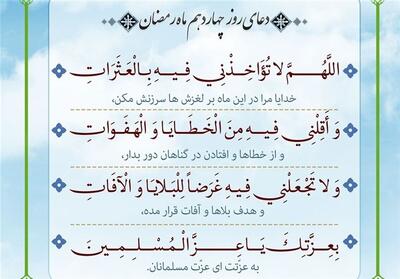 دعای روز چهاردهم ماه رمضان
اللَّهُمَّ لَا تُؤَاخِذْنِي فِيهِ بِالْعَثَرَاتِ
خدایا مرا در این ماه بر لغزش ها سرزنش مکن،
وَ أَقِلْنِي فِيهِ مِنَ الْخَطَايَا وَ الْهَفَوَاتِ
و از خطاها و افتادن در گناهان دور بدار،
وَ لَا تَجْعَلْنِي فِيهِ غَرَضاً لِلْبَلَايَا وَ الْآفَاتِ
و هدف بلاها و آفات قرار مده،
بِعِزَّتِكَ يَا عِزَّ الْمُسْلِمِينَ
به عزّتت ای عزّت مسلمانان.